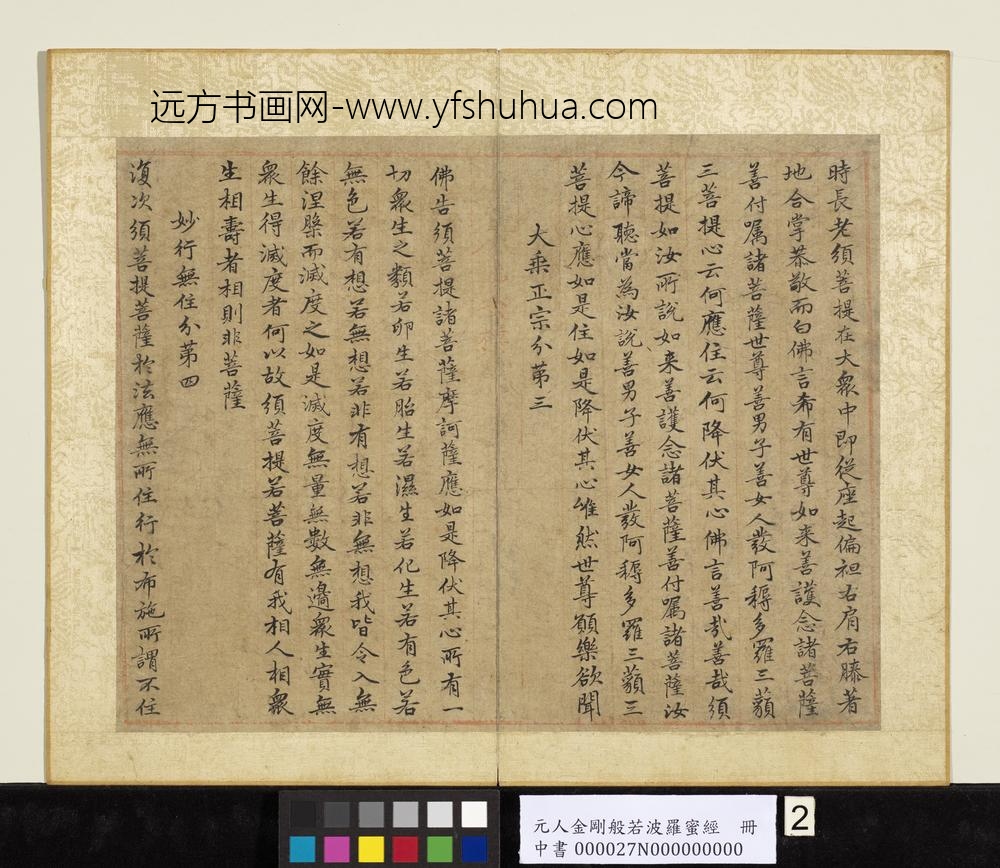 远方书画网-www.yfshuhua.com
時長老須菩提在大衆中即從座起偏袒右肩右膝著
地合掌恭敬而白佛言希有世尊如来善護念諸菩薩
善付嘱諸菩薩世尊善男子善女人發阿耨多羅三藐
三菩提心云何應住云何降伏其心佛言善哉善哉須
菩提如汝所說如来善護念諸菩薩善付嘱諸菩薩汝
今諦聽當為汝說善男子善女人發阿耨多羅三藐三
菩提心應如是住如是降伏其心唯然世尊願樂欲聞
大乘正宗分第三
佛告須菩提諸菩薩摩訶薩應如是降伏其心所有一
切衆生之類若卵生若胎生若濕生若化生若有色若
無色若有想若無想若非有想若非無想我皆令入無
餘涅槃而滅度之如是滅度無量無數無邊衆生實無
衆生得滅度者何以故須菩提若菩薩有我相人相衆
生相壽者相則非菩薩
妙行無住分第四
復次須菩提菩薩於法應無所住行於布施所謂不住
元人金剛般若波羅蜜經 冊
中書 000027N000000000
2